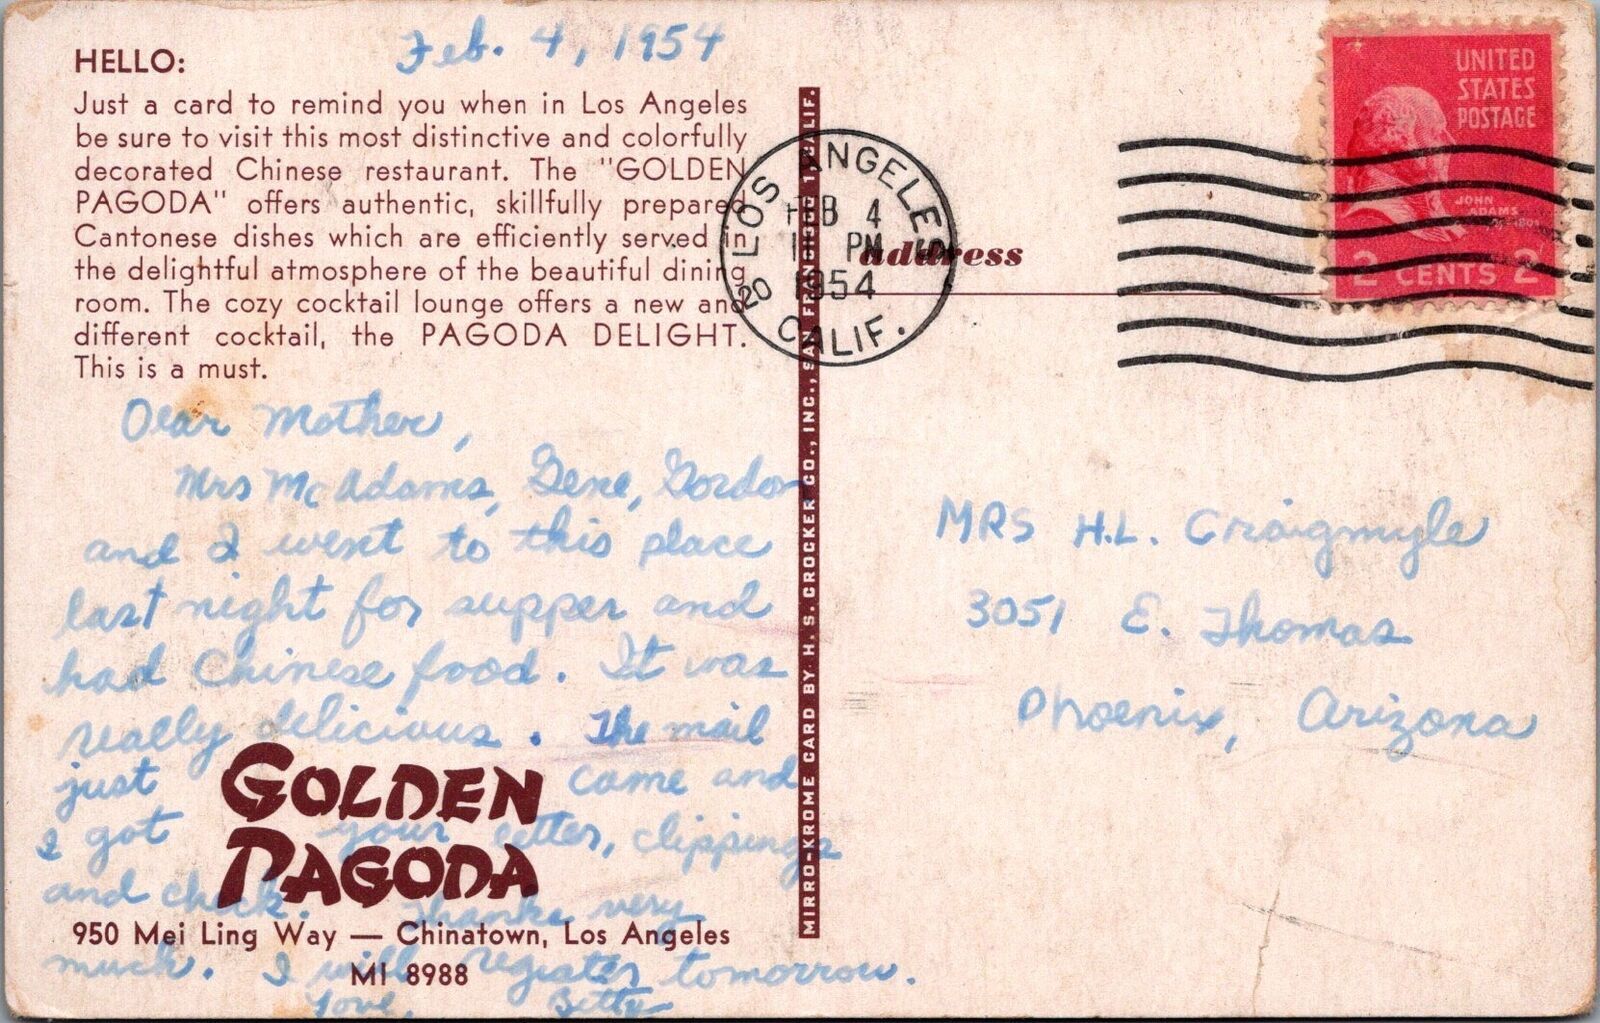 Feb. 4, 1954
HELLO:
Just a card to remind you when in Los Angeles
be sure to visit this most distinctive and colorfully
decorated Chinese restaurant. The "GOLDEN
PAGODA" offers authentic, skillfully prepared
Cantonese dishes which are efficiently served in
the delightful atmosphere of the beautiful dining
room. The cozy cocktail lounge offers a new and
different cocktail, the PAGODA DELIGHT.
This is a must.
Dear Mother,
Mrs McAdams, Gene, Gordon
and I went to this place
last night for supper and
had Chinese food. It was
really delicious. The mail
just came and
I got your letter, clippings
and check. Thanks very
much. I will register tomorrow.
Love, Betty
GOLDEN
PAGODA
950 Mei Ling Way — Chinatown, Los Angeles
MI 8988
MIRRO-KROME CARD BY H. S. CROCKER CO., INC., SAN FRANCISCO 1, CALIF.
LOS ANGELES
FEB 4
11 PM
1954
20
CALIF.
address
UNITED
STATES
POSTAGE
JOHN
ADAMS
2 CENTS 2
MRS H.L. Craigmyle
3051 E. Thomas
Phoenix, Arizona